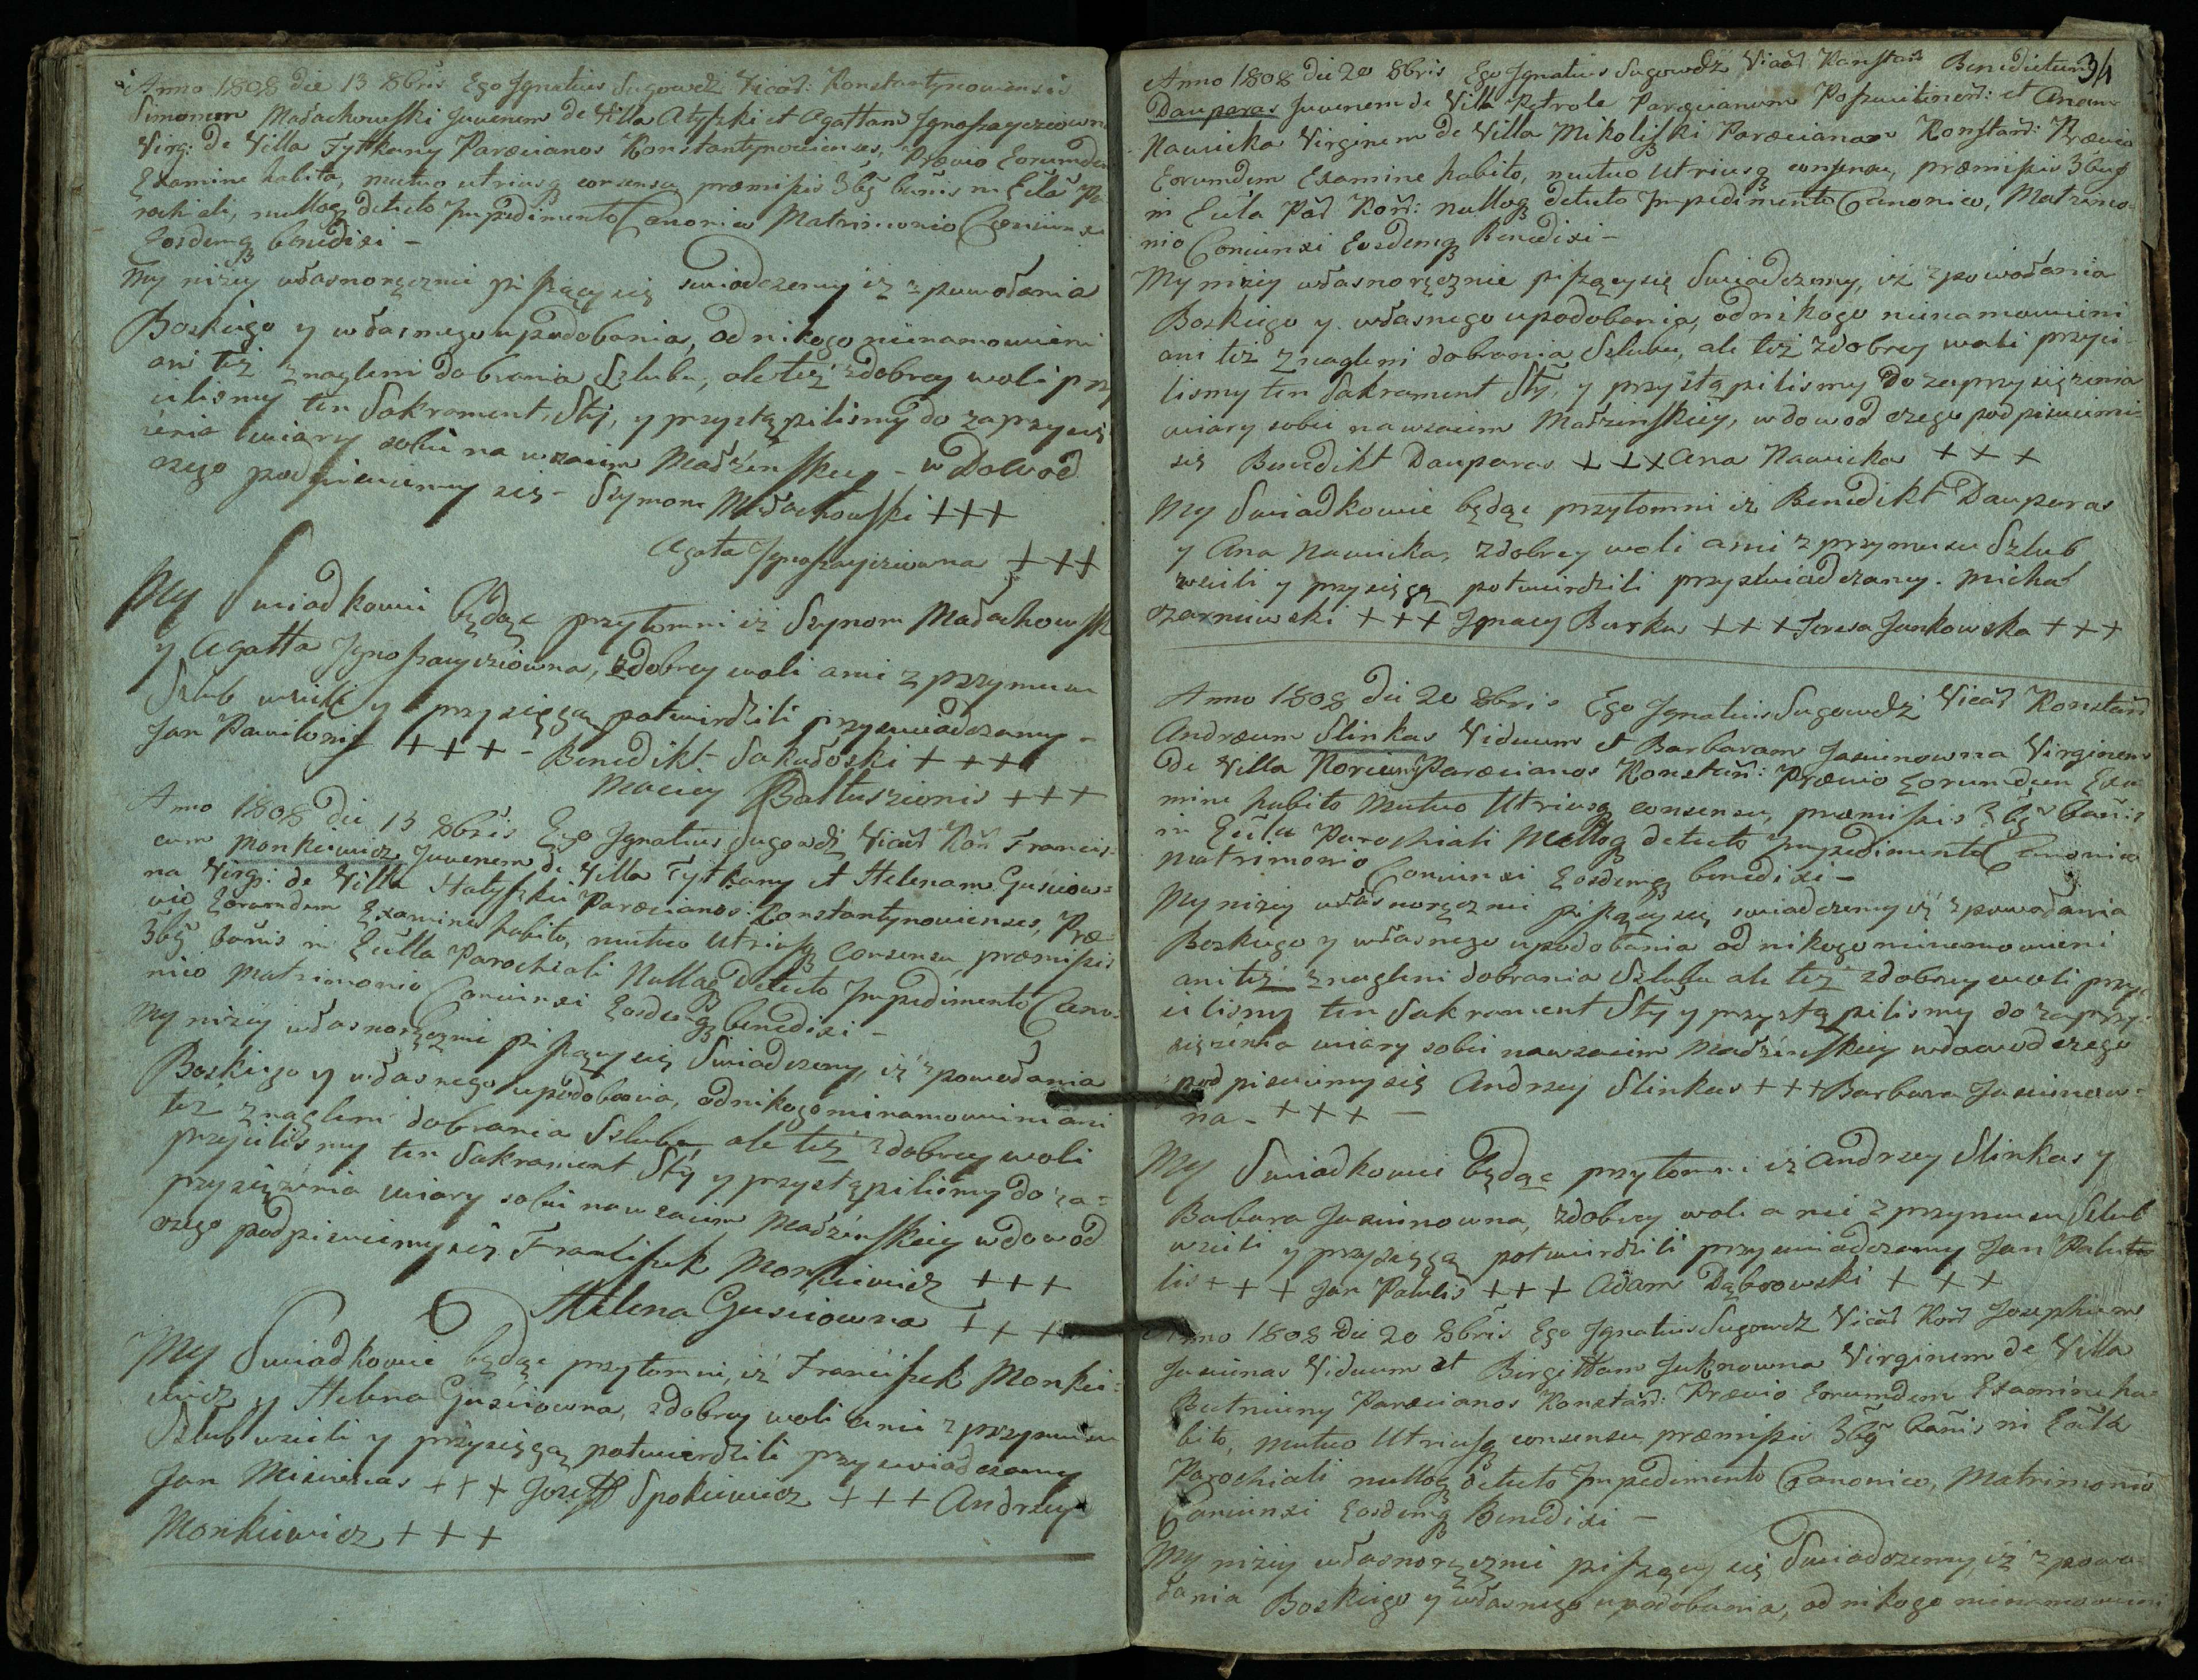 Anno 1808 die 13 8bris Ego Ignatius Sugowdź Vicar: Konstantynowiensis
Simonem Małachowski Juvenem de Villa Atyszki et Agattam
Virg: de Villa Tytkany Parœcianos Konstantynowienses, Prævio Eorumdem
Examine habito, mutuo utriusq consensu, præmissis 3bg bañis in Ecła Pa-
rochiali, nulloq detecto Impedimento Canonico Matrimonio Coniunxi
Eosdemq benedixi –
My niżey własnoręcznie piszący się swiadczemy iż z powołania
Boskiego y własnego upodobania, od nikogo nienamowieni
ani też znagleni do brania Szlubu, ale też zdobrey woli przy
ielismy ten Sakrament Sty, y przystąpilismy do zaprzysię
żenia wiary sobie na wzaiem Małżenskiey – w Dowod
czego podpisuiemy się – Szymon Małachowski +++
Agata +++
My Swiadkowie będąc przytomni iż Szymon Małachowsk
y Agatta zdobrey woli a nie z przymusu
Szlub wzieli y przysięgą potwierdzili przyswiadczamy –
Jan Pawilonis +++ – Benedikt Sakadoski +++
Maciey Baltuszionis +++
Anno 1808 die 13 8bris Ego Ignatius Sugowdź Vicar Koñ Francis-
cum Monkiewicz Juvenem de Villa Tytkany et Helenam Gusciow=
na Virg: de Villa Hatyszki Parœcianos Konstantynowienses, Præ-
vio Eorumdem Examine habito, mutuo Utriusq Consensu, præmissis
3bg bañis in Ecłla Parochiali Nulloq Detecto Impedimento Cano-
nico Matrimonio Coniunxi Eosdemq benedixi –
My niżey własnoręcznie piszący się Swiadczemy, iż z powołania
Boskiego y własnego upodobania, od nikogo nienamowieni ani
też znagleni do brania Szlubu, ale też zdobrey woli
przyielismy ten Sakrament Sty y przystąpilismy do za=
przysiężenia wiary sobie nawzaiem Małżenskiey w dowod
czego podpisuiemy się Franciszek Monkiewicz +++
Helena Gusciowna +++
My Swiadkowie będąc przytomni, iż Franciszek Monkie=
wicz y Helena Gusciowna, zdobrey woli a nie z przymusu
Szlub wzieli y przysięgą potwierdzili przyswiadczamy
Jan Misiunas +++ Jozeff Spokiewicz +++ Andrzey
Monkiewicz +++
34
Anno 1808 die 20 8bris Ego Ignatius Sugowdź Vicar Konstañ Benedictum
Dauparas Juvenem de Villa Petrole Parœcianum et Anam
Nawicka Virginem de Villa Mikoliszki Parœcianam Konstañ: Prævio
Eorumdem Examine habito, mutuo Utriusq consensu, præmissis 3bus
in Ecła Par Koñ: nulloq detecto Impedimento Canonico, Matrimo-
nio Coniunxi Eosdemq Benedixi –
My niżey własnoręcznie piszący się Swiadczemy, iż z powołania
Boskiego y własnego upodobania, od nikogo nienamowieni
ani też znagleni do brania Szlubu, ale też zdobrey woli przyie-
lismy ten Sakrament Sty, y przystąpilismy do zaprzysiężenia
wiary sobie nawzaiem Małżenskiey, w dowod czego podpisuiemi
się Benedikt Dauparas +++ Ana Nawicka +++
My Swiadkowie będąc przytomni iż Benedikt Dauparas
y Ana Nawicka, zdobrey woli a nie z przymusu Szlub
wzieli y przysięgą potwierdzili przyswiadczamy. Michał
Czerniewski +++ Ignacy Burka +++ Teresa Jankowska +++
Anno 1808 die 20 8bris Ego Ignatius Sugowdź Vicar Konstañ
Andræum Slinkas Viduum et Barbaram Jasiunowna Virginem
De Villa Parœcianos Konstañ: Prævio Eorumdem Exa
mine habito Mutuo Utriusq consensu, præmissis 3bg bañis
in Ecła Parochiali Nulloq detecto Impedimento Canonico
Matrimonio Coniunxi Eosdemq benedixi –
My niżey własnoręcznie piszący się swiadczemy iż z powołania
Boskiego y własnego upodobania od nikogo nienamowieni
ani też znagleni do brania Szlubu ale też zdobrey woli przy-
ielismy ten Sakrament Sty y przystąpilismy do zaprzy-
siężenia wiary sobie nawzaiem Małżenskiey w dowod czego
podpisuiemy się Andrzey Slinkas +++ Barbara Jasiunow-
na – +++ –
My Swiadkowie będąc przytomni iż Andrzey Slinkas y
Babara Jasiunowna, zdobrey woli a nie z przymusu Szlub
wzieli y przysięgą potwierdzili przyswiadczamy Jan
lis +++ Jan Patulis +++ Adam Dąbrowski +++
Anno 1808 Die 20 8bris Ego Ignatius Sugowdź Vicar Koñ Josephum
Jasiunas Viduum et Birgittam Juknowna Virginem de Villa
Butniuny Parœcianos Konstañ: Prævio Eorumdem Examine ha-
bito, mutuo Utriusq consensu, præmissis 3bg bañis in Ecła
Parochiali nulloq detecto Impedimento Canonico, Matrimonio
Coniunxi Eosdemq Benedixi –
My niżey własnoręcznie piszący się Swiadczemy, iż z powo-
łania Boskiego y własnego upodobania, od nikogo nienamowieni